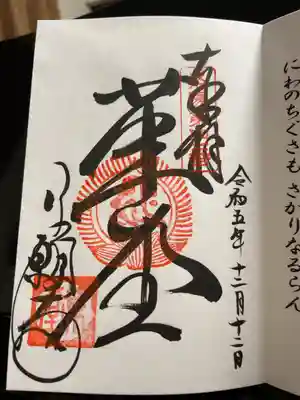 にわのちくさも さかりなるらん
奉拝
令和五年 十二月十二日
革堂
行願寺